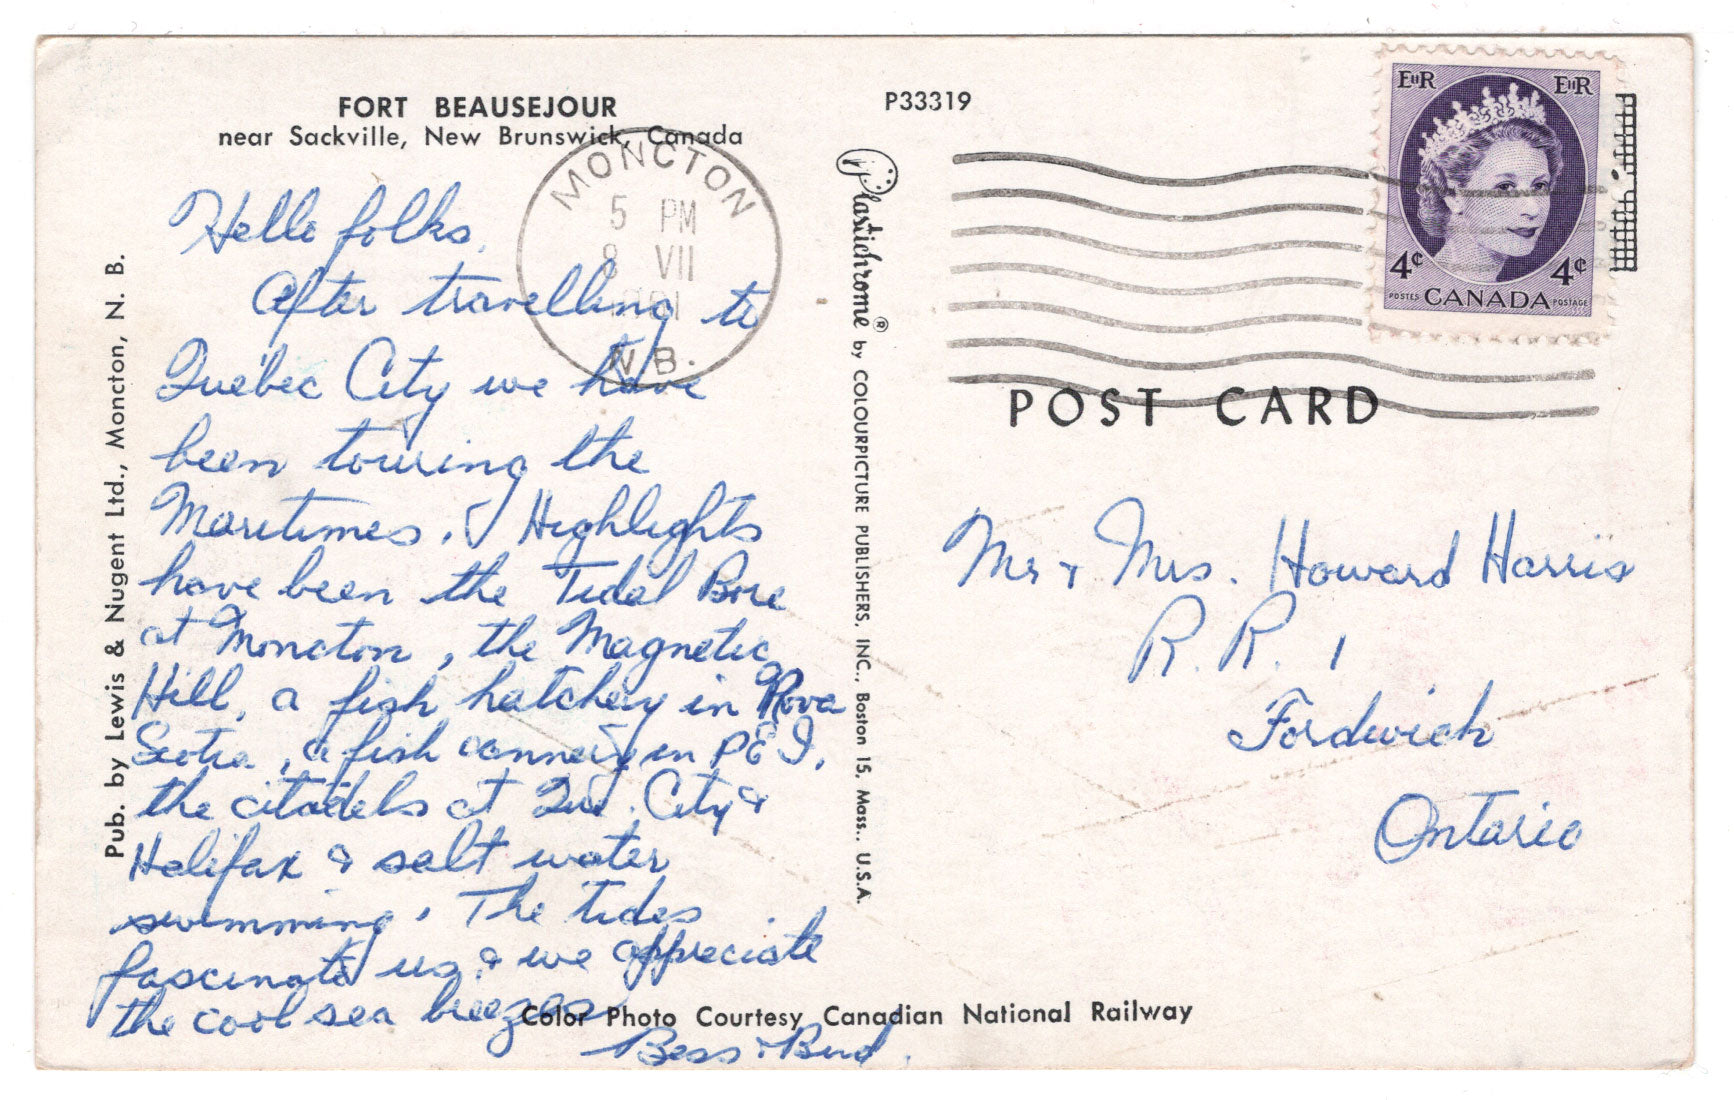 FORT BEAUSEJOUR
near Sackville, New Brunswick, Canada
P33319
MONCTON
5 PM
8 VII
N.B.
EIIR EIIR
4¢ 4¢
POSTES CANADA POSTAGE
POST CARD
Hello folks,
After travelling to
Quebec City we have
been touring the
Maritimes. Highlights
have been the Tidal Bore
at Moncton, the Magnetic
Hill, a fish hatchery in Nova
Scotia, a fish cannery in PEI,
the citadels at Que. City &
Halifax & salt water
swimming. The tides
fascinate us, & we appreciate
the cool sea breezes
Bess & Bud.
Pub. by Lewis & Nugent Ltd., Moncton, N. B.
Plastichrome ® by COLOURPICTURE PUBLISHERS, INC., Boston 15, Mass., U.S.A.
Mr & Mrs. Howard Harris
R. R. 1
Fordwich
Ontario
Color Photo Courtesy Canadian National Railway